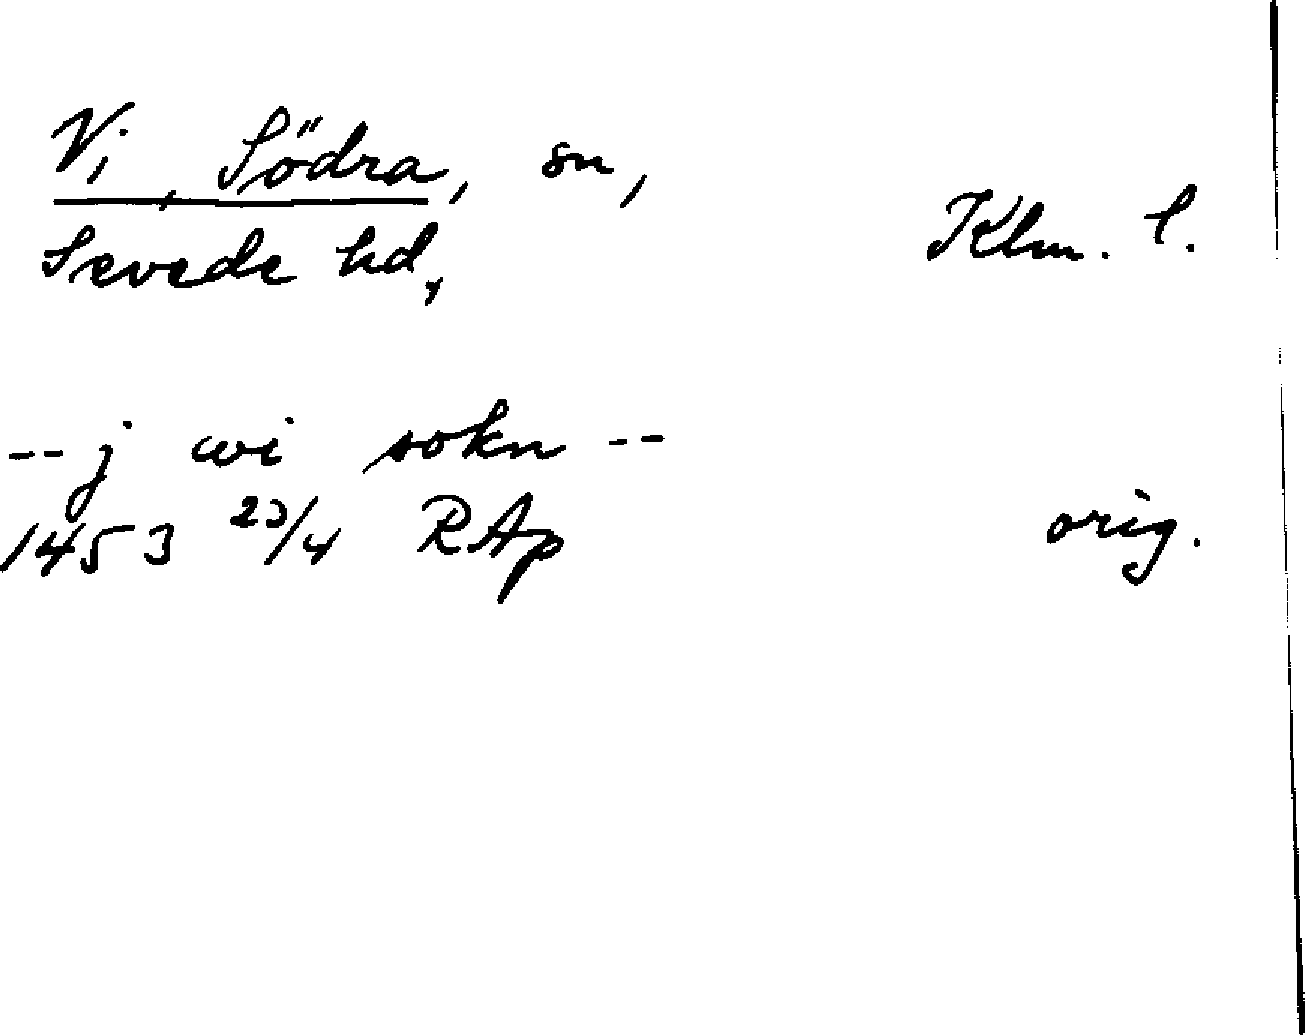 Vi, Södra, sn,
Sevede hd, Klm. l.
-- j wi sokn --
1453 23/4 RAp orig.